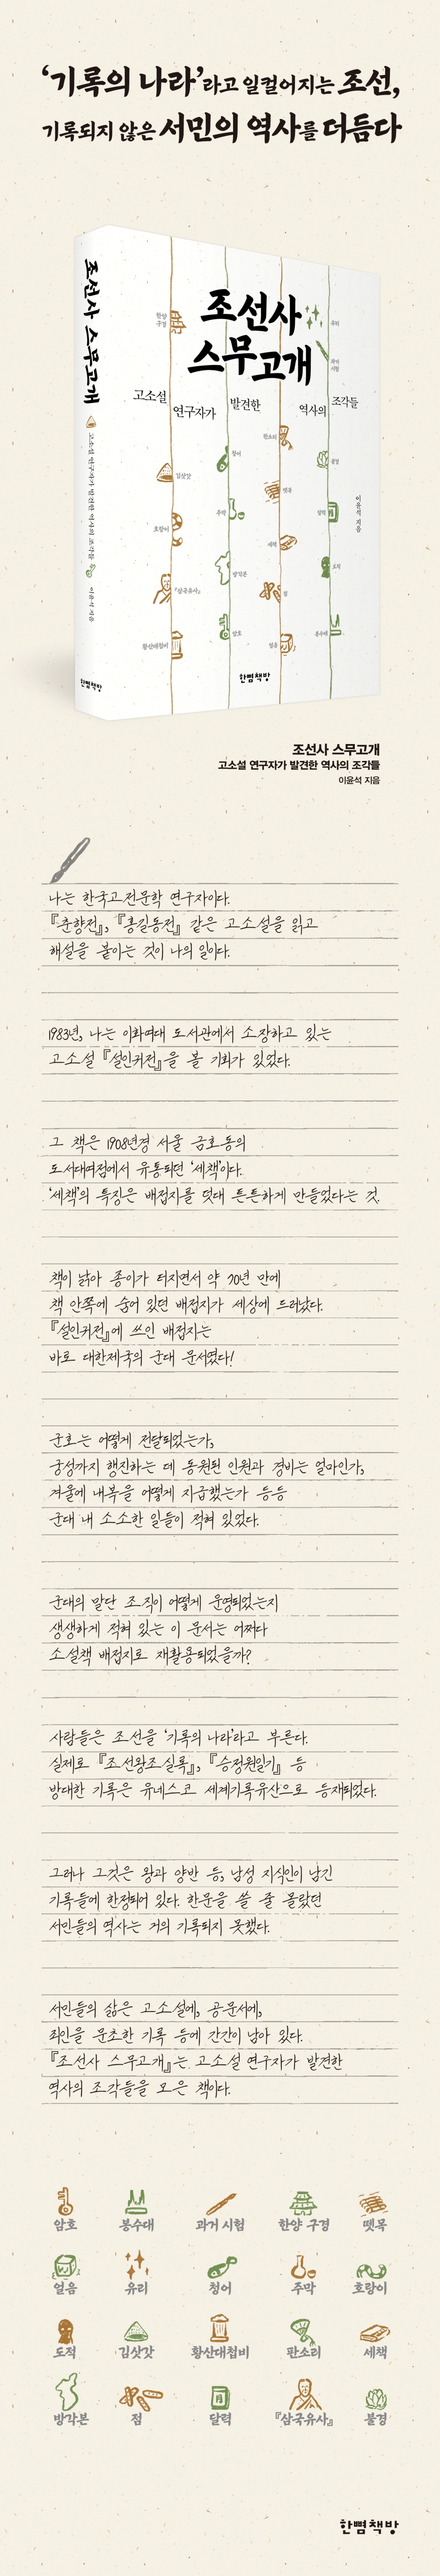 ‘기록의 나라’라고 일컬어지는 조선,
기록되지 않은 서민의 역사를 더듬다
조선사 스무고개
고소설 연구자가 발견한 역사의 조각들
이윤석 지음
한뼘책방
조선사
스무고개
고소설 연구자가 발견한 역사의 조각들
한양 구경
유리
과거 시험
판소리
청어
불경
김삿갓
뗏목
주막
달력
이윤석 지음
호랑이
세책
도적
방각본
『삼국유사』
점
암호
봉수대
황산대첩비
얼음
한뼘책방
조선사 스무고개
고소설 연구자가 발견한 역사의 조각들
이윤석 지음
나는 한국고전문학 연구자이다.
『춘향전』, 『홍길동전』 같은 고소설을 읽고
해설을 붙이는 것이 나의 일이다.
1983년, 나는 이화여대 도서관에서 소장하고 있는
고소설 『설인귀전』을 볼 기회가 있었다.
그 책은 1908년경 서울 금호동의
도서대여점에서 유통되던 ‘세책’이다.
‘세책’의 특징은 배접지를 덧대 튼튼하게 만들었다는 것.
책이 낡아 종이가 터지면서 약 70년 만에
책 안쪽에 숨어 있던 배접지가 세상에 드러났다.
『설인귀전』에 쓰인 배접지는
바로 대한제국의 군대 문서였다!
군호는 어떻게 전달되었는가,
궁성까지 행진하는 데 동원된 인원과 경비는 얼마인가,
겨울에 내복을 어떻게 지급했는가 등등
군대 내 소소한 일들이 적혀 있었다.
군대의 말단 조직이 어떻게 운영되었는지
생생하게 적혀 있는 이 문서는 어쩌다
소설책 배접지로 재활용되었을까?
사람들은 조선을 ‘기록의 나라’라고 부른다.
실제로 『조선왕조실록』, 『승정원일기』 등
방대한 기록은 유네스코 세계기록유산으로 등재되었다.
그러나 그것은 왕과 양반 등, 남성 지식인이 남긴
기록들에 한정되어 있다. 한문을 쓸 줄 몰랐던
서민들의 역사는 거의 기록되지 못했다.
서민들의 삶은 고소설에, 공문서에,
죄인을 문초한 기록 등에 간간이 남아 있다.
『조선사 스무고개』는 고소설 연구자가 발견한
역사의 조각들을 모은 책이다.
암호 봉수대 과거 시험 한양 구경 뗏목
얼음 유리 청어 주막 호랑이
도적 김삿갓 황산대첩비 판소리 세책
방각본 점 달력 『삼국유사』 불경
한뼘책방